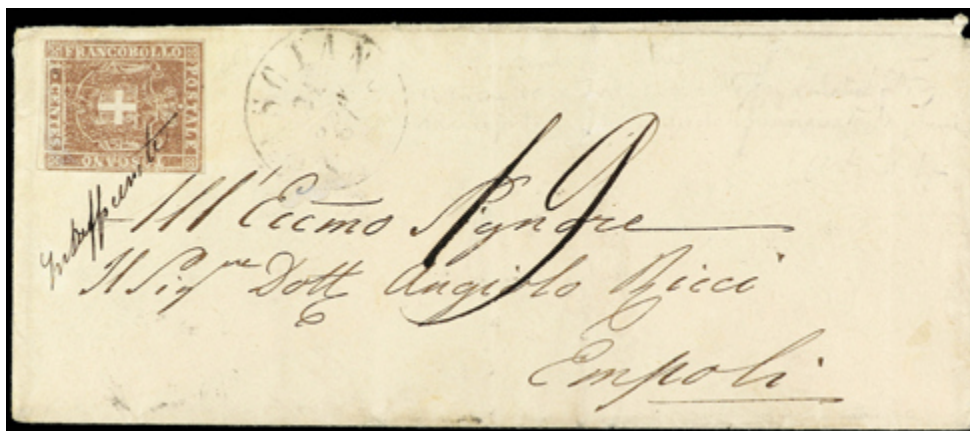 FRANCOBOLLO
POSTALE
TOSCANO
Insufficiente
19
All' Eccmo Signore
Il Sigre Dott Angiolo Ricci
Empoli